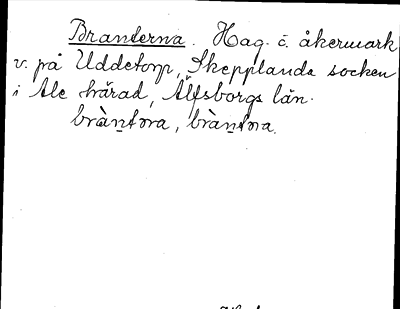 Branterna. Hag. o. åkermark
v. på Uddetorp, Skepplanda socken
i Ale härad, Älfsborgs län.
bràntəna, bràntəna.